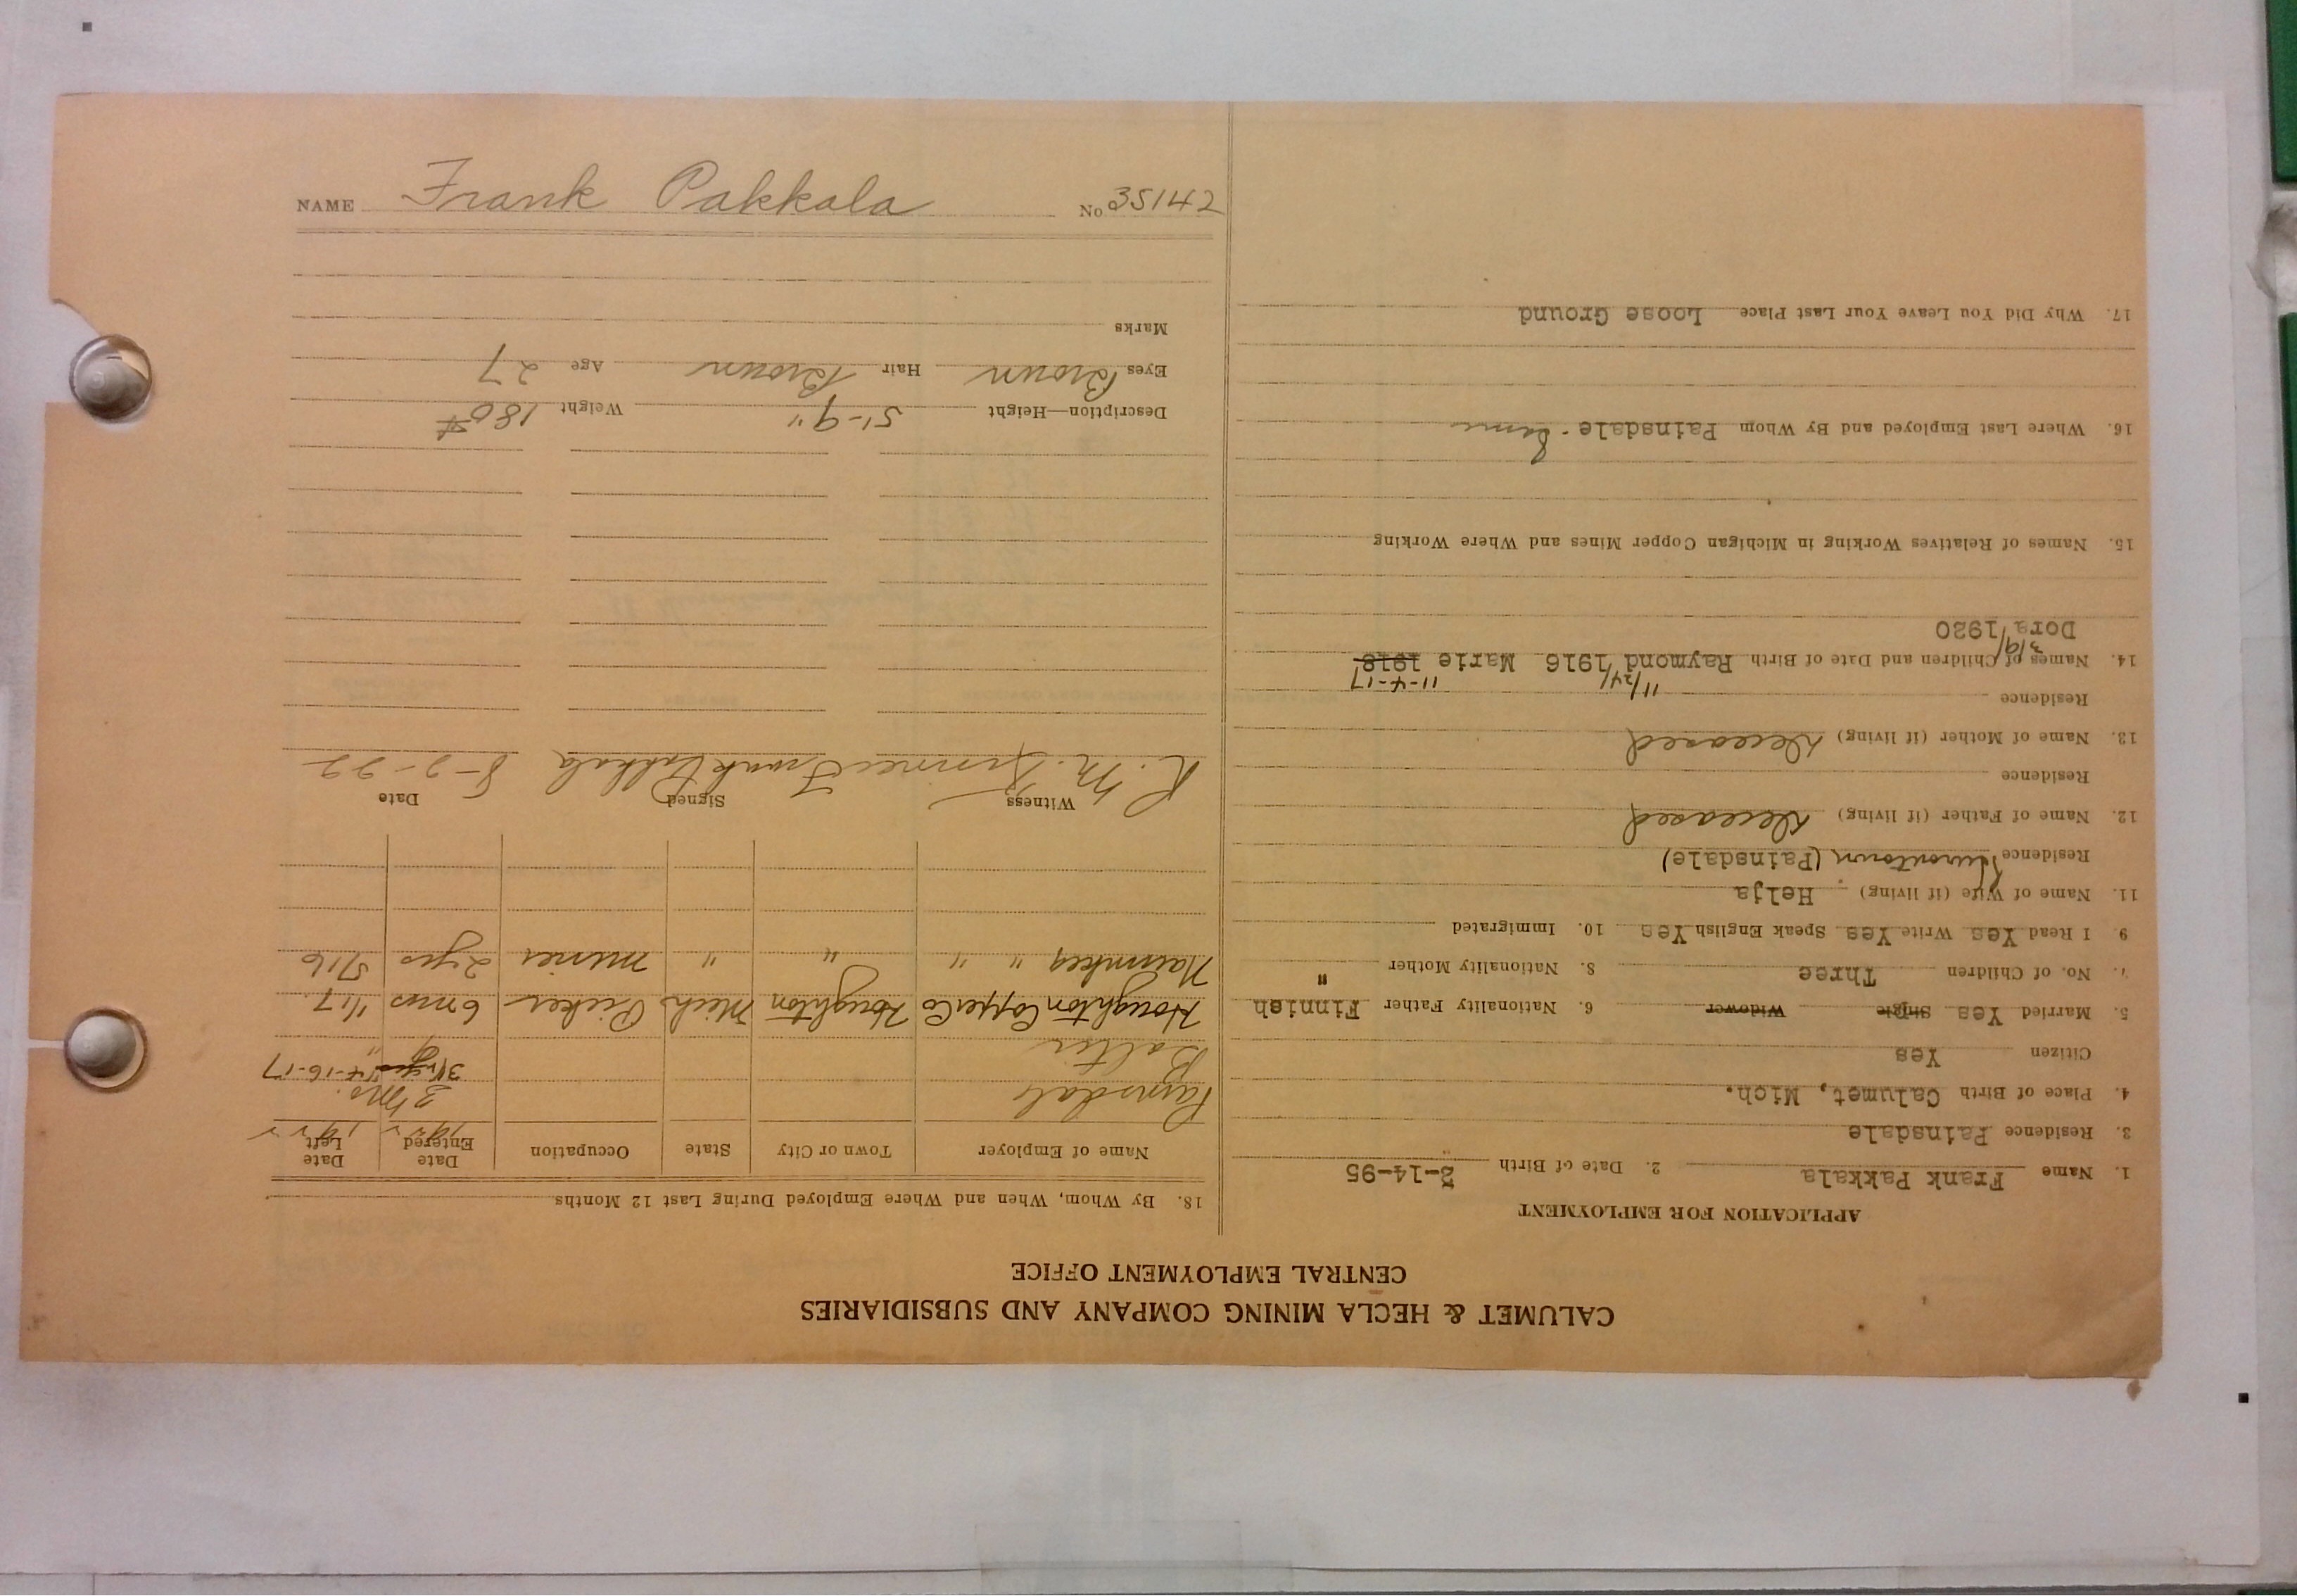 CALUMET & HECLA MINING COMPANY AND SUBSIDIARIES
CENTRAL EMPLOYMENT OFFICE
APPLICATION FOR EMPLOYMENT
1. Name Frank Pakkala 2. Date of Birth 3-14-95
3. Residence Painsdale
4. Place of Birth Calumet, Mich.
Citizen Yes
5. Married Yes Single Widower 6. Nationality Father Finnish
7. No. of Children Three 8. Nationality Mother "
9. I Read Yes Write Yes Speak English Yes 10. Immigrated
11. Name of Wife (if living) Helja
Residence Hurontown (Painsdale)
12. Name of Father (if living) Deceased
Residence
13. Name of Mother (if living) Deceased
Residence
11/24/ 11-4-17
14. Names of Children and Date of Birth Raymond 1916 Marie 1918
3/9/
Dora 1920
15. Names of Relatives Working in Michigan Copper Mines and Where Working
16. Where Last Employed and By Whom Painsdale - Same
17. Why Did You Leave Your Last Place Loose Ground
18. By Whom, When and Where Employed During Last 12 Months
Name of Employer Town or City State Occupation Date Entered Date Left
1922 1922
Painsdale 3 Ms.
Baltic 4-16-17
Houghton Copper Co Houghton Mich Picker 6 mos 1/17
" " " " miner 2 yrs 5/16
Witness Signed Date
Frank Pakkala 8-2-22
Description—Height 5'-9" Weight 180#
Eyes Brown Hair Brown Age 27
Marks
NAME Frank Pakkala No 35142